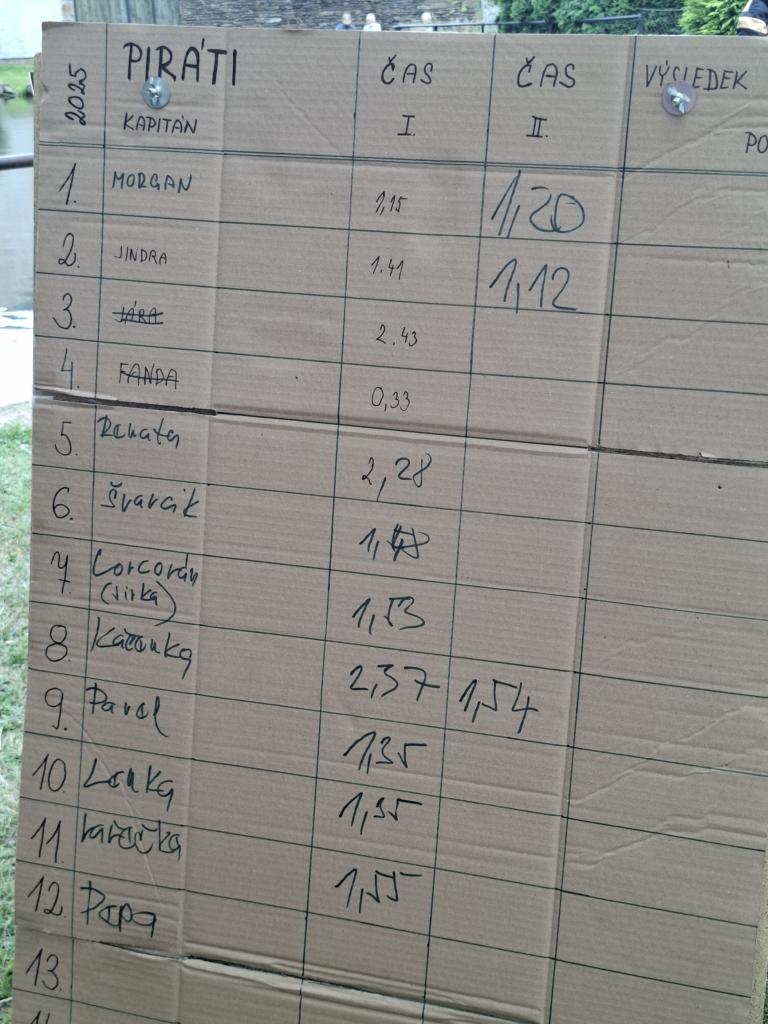 2025 PIRÁTI ČAS ČAS VÝSLEDEK
KAPITÁN I. II. PO
1. MORGAN 1,15 1,20
2. JINDRA 1.41 1,12
3. JÁRA 2.43
4. FANDA 0,33
5. Renata 2,28
6. Švarcik
7. Corcorán 1,53
(Jirka)
8. Kačenka 2,37 1,54
9. Pavel 1,35
10. Lenka 1,35
11. 1,55
12. Pepa
13.